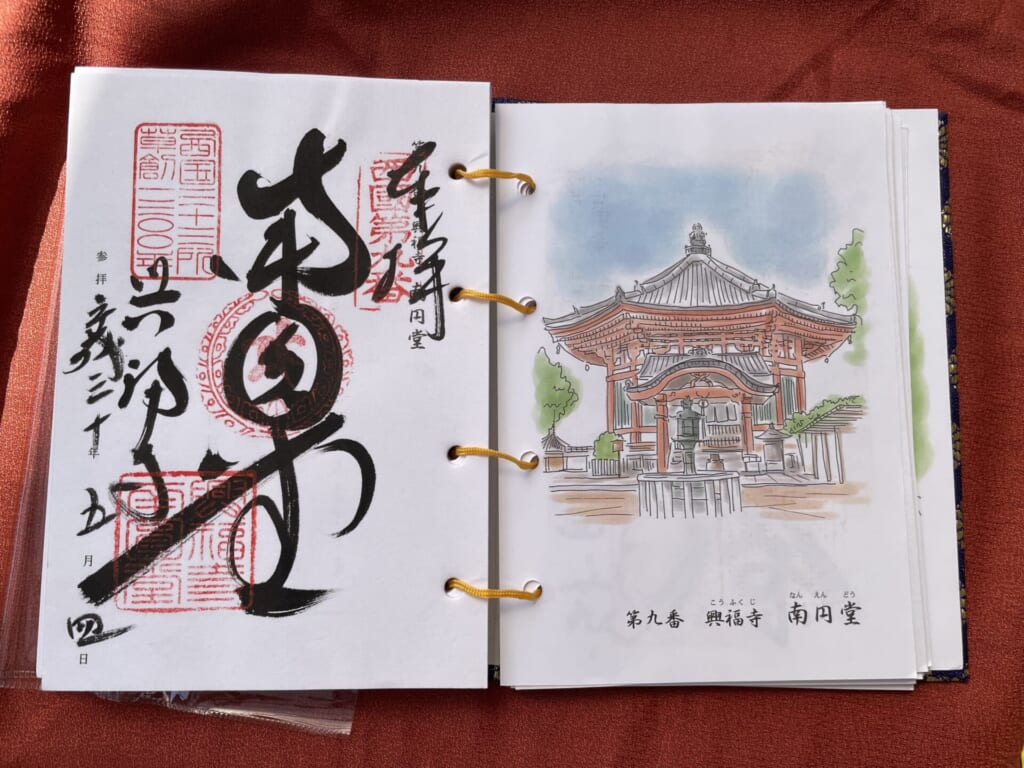 奉拝
西国第九番
南円堂
西国三十三所
草創一三〇〇年
興福寺
参拝 平成三十年 五月 四日
こうふくじ なんえんどう
第九番 興福寺 南円堂